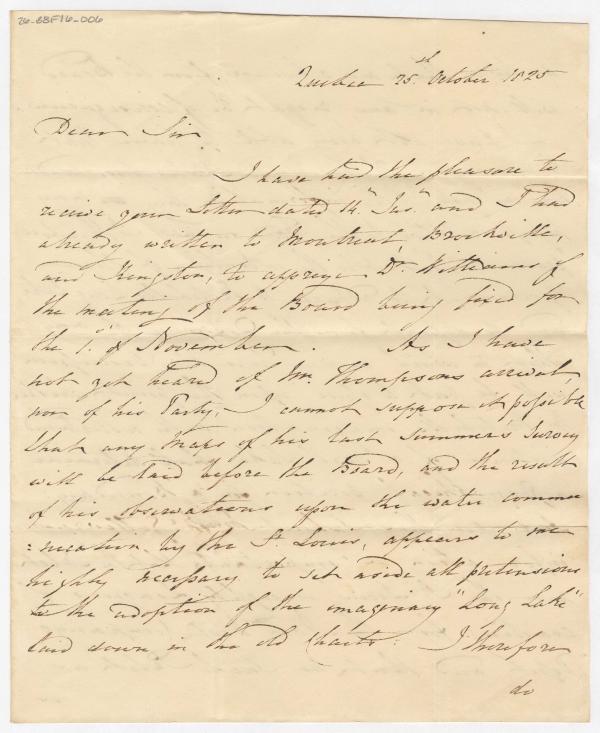 26-BBF16-006
Quebec 25.st October 1825
Dear Sir
I have had the pleasure to
receive your Letter dated 14. "Ins." and I had
already written to Montreal, Brockville,
and Kingston, to apprize Dr. Williams of
the meeting of the Board being fixed for
the 1.st of November. As I have
not yet heard of Mr. Thompsons arrival,
nor of his Party, I cannot suppose it possible
that any Maps of his last Summer's Survey
will be laid before the Board, and the result
of his observations upon the water commu
=nication by the St. Louis, appears to me
highly necessary to set aside all pretensions
to the adoption of the imaginary "Long Lake"
laid down in the old Charts. I therefore
do